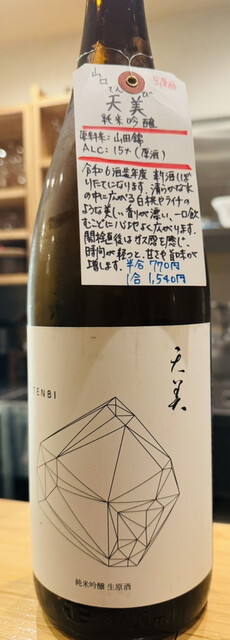 山口
生原酒
てんび
天美
純米吟醸
原料米：山田錦
ALC：15%（原酒）
令和6酒造年度 新酒しぼ
りたてになります。清らかな水
の中に広がる白桃やライチの
ような美しい香りが漂い、一口飲
むごとに心地よく広がります。
開栓直後はガス感を感じ、
時間が経つと、甘さや旨味が
増します。半合 770円
1合 1,540円
天美
TENBI
純米吟醸 生原酒